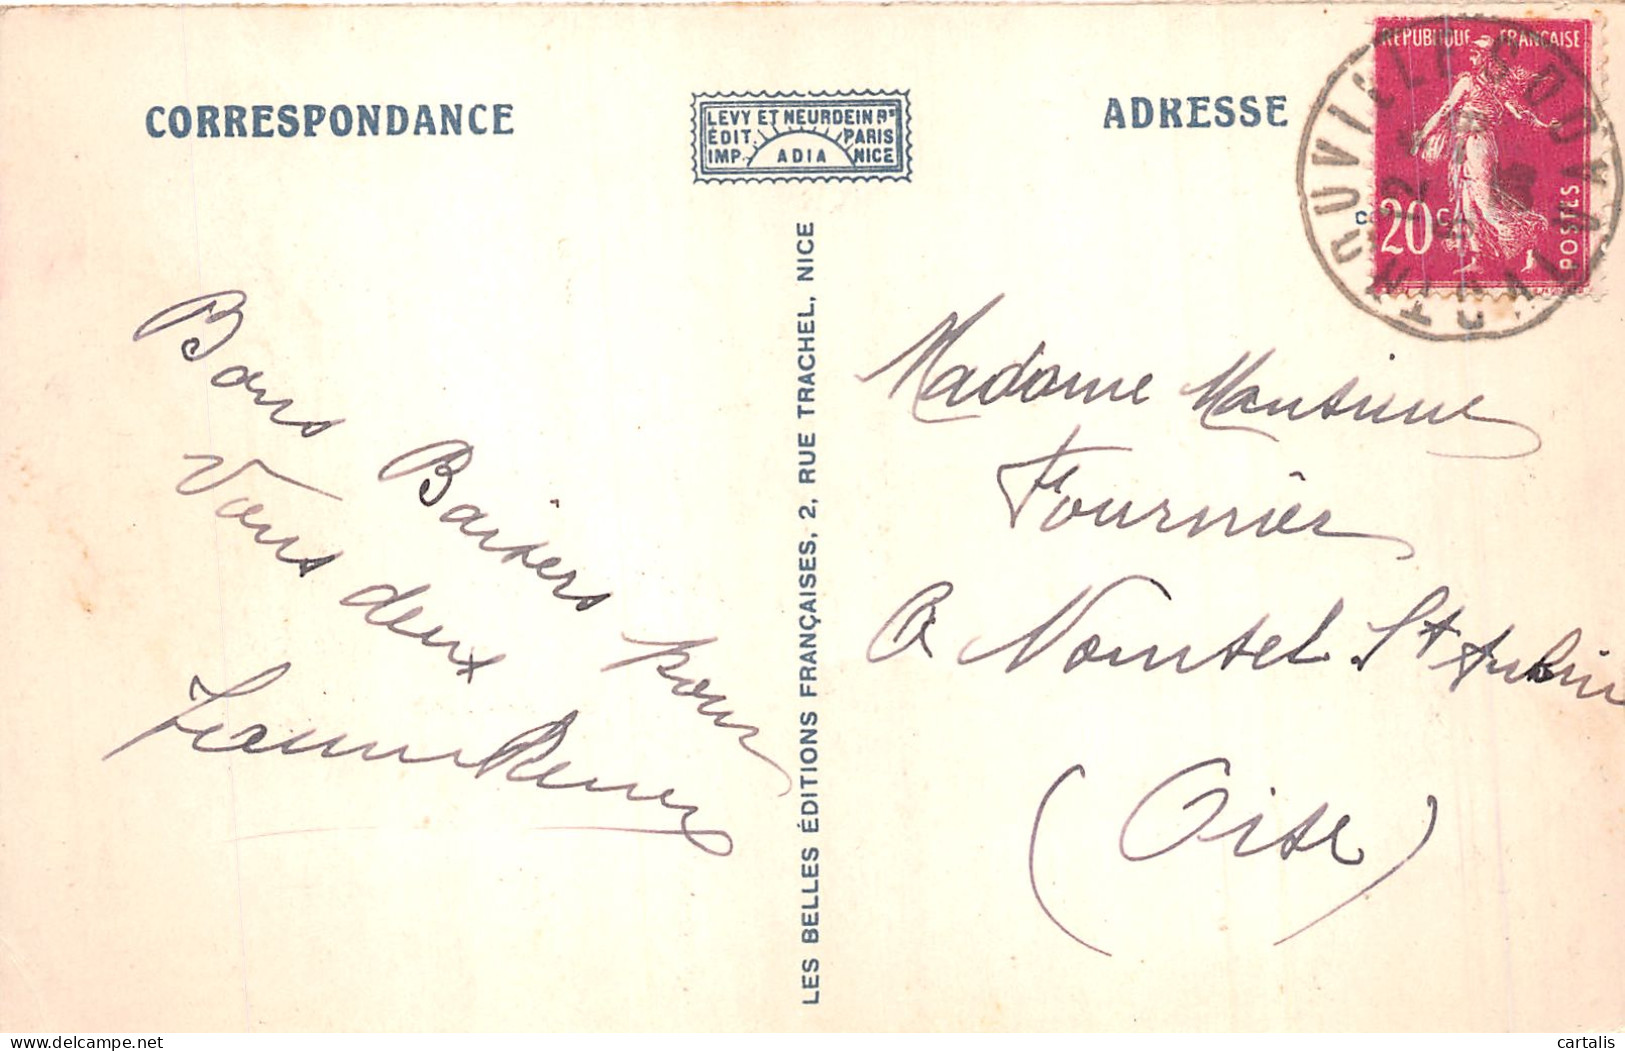 CORRESPONDANCE
LEVY ET NEURDEIN Rs
ÉDIT. PARIS
IMP. ADIA NICE
ADRESSE
RÉPUBLIQUE FRANÇAISE
20c
POSTES
LES BELLES ÉDITIONS FRANÇAISES, 2, RUE TRACHEL, NICE
Bons Baisers pour
Vous deux
Madame
Fournier
A St Aubin
(Oise)
delcampe.net
cartalis